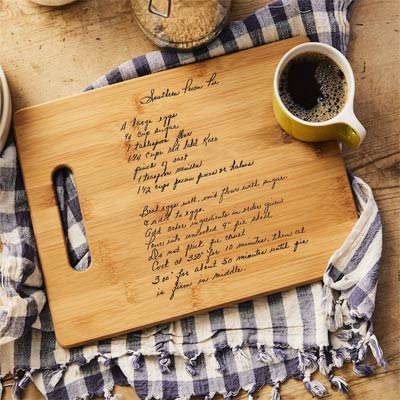 Southern Pecan Pie
4 large eggs
3/4 cup sugar
1 tablespoon flour
1 1/4 cups red label Karo
pinch of salt
1 teaspoon vanilla
1 1/2 cups pecan pieces or halves
Beat eggs well, mix flour with sugar.
& add to eggs.
Add other ingredients in order given
Pour into unbaked 9" pie shell
Do not prick pie crust
Cook at 350° for 10 minutes, then at
300° for about 50 minutes until pie
is firm in middle.